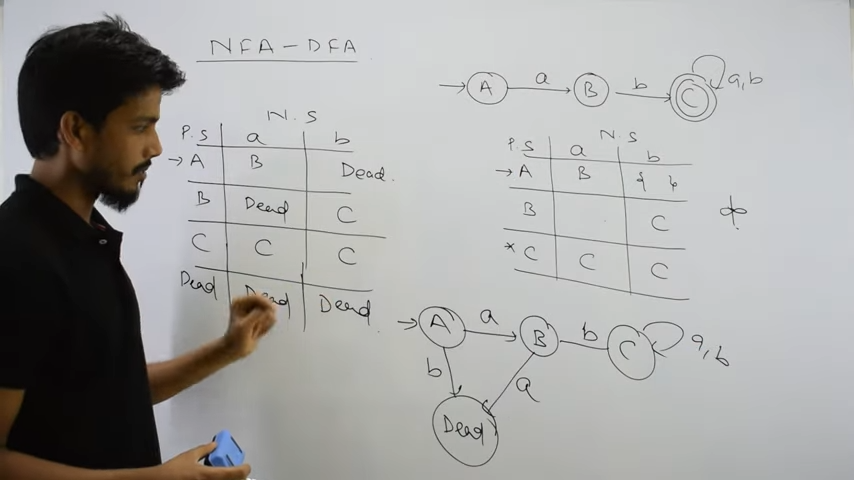 NFA - DFA
N.S
P.S a b
→ A B Dead.
B Dead C
C C C
Dead Dead Dead
→ A a B b C a,b
N.S
P.S a b
→ A B { }
B C
* C C C
ϕ
→ A a B b C a,b
b a
Dead